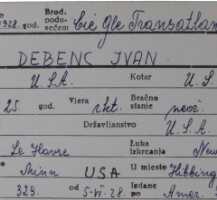 1928. Brod. podu- cie Gle Transatlan
god. zećem
DEBENC IVAN
U.S.A. Kotar U.S.
25 god. Vjera rkt. Bračno stanje
Državljanstvo U.S.A.
Le Havre Luka Izkrcanja New
Minn USA U mjesto Hibbing
329. od 5-VI-28. Izdane po Amer.